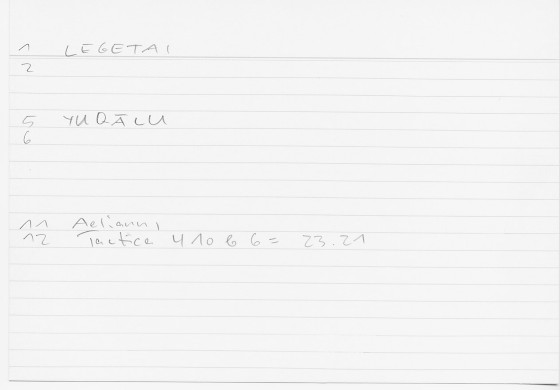 1 LEGETAI
2
5 YUQĀLU
6
11 Aeliani,
12 Tactica 410 b 6 = 23.21